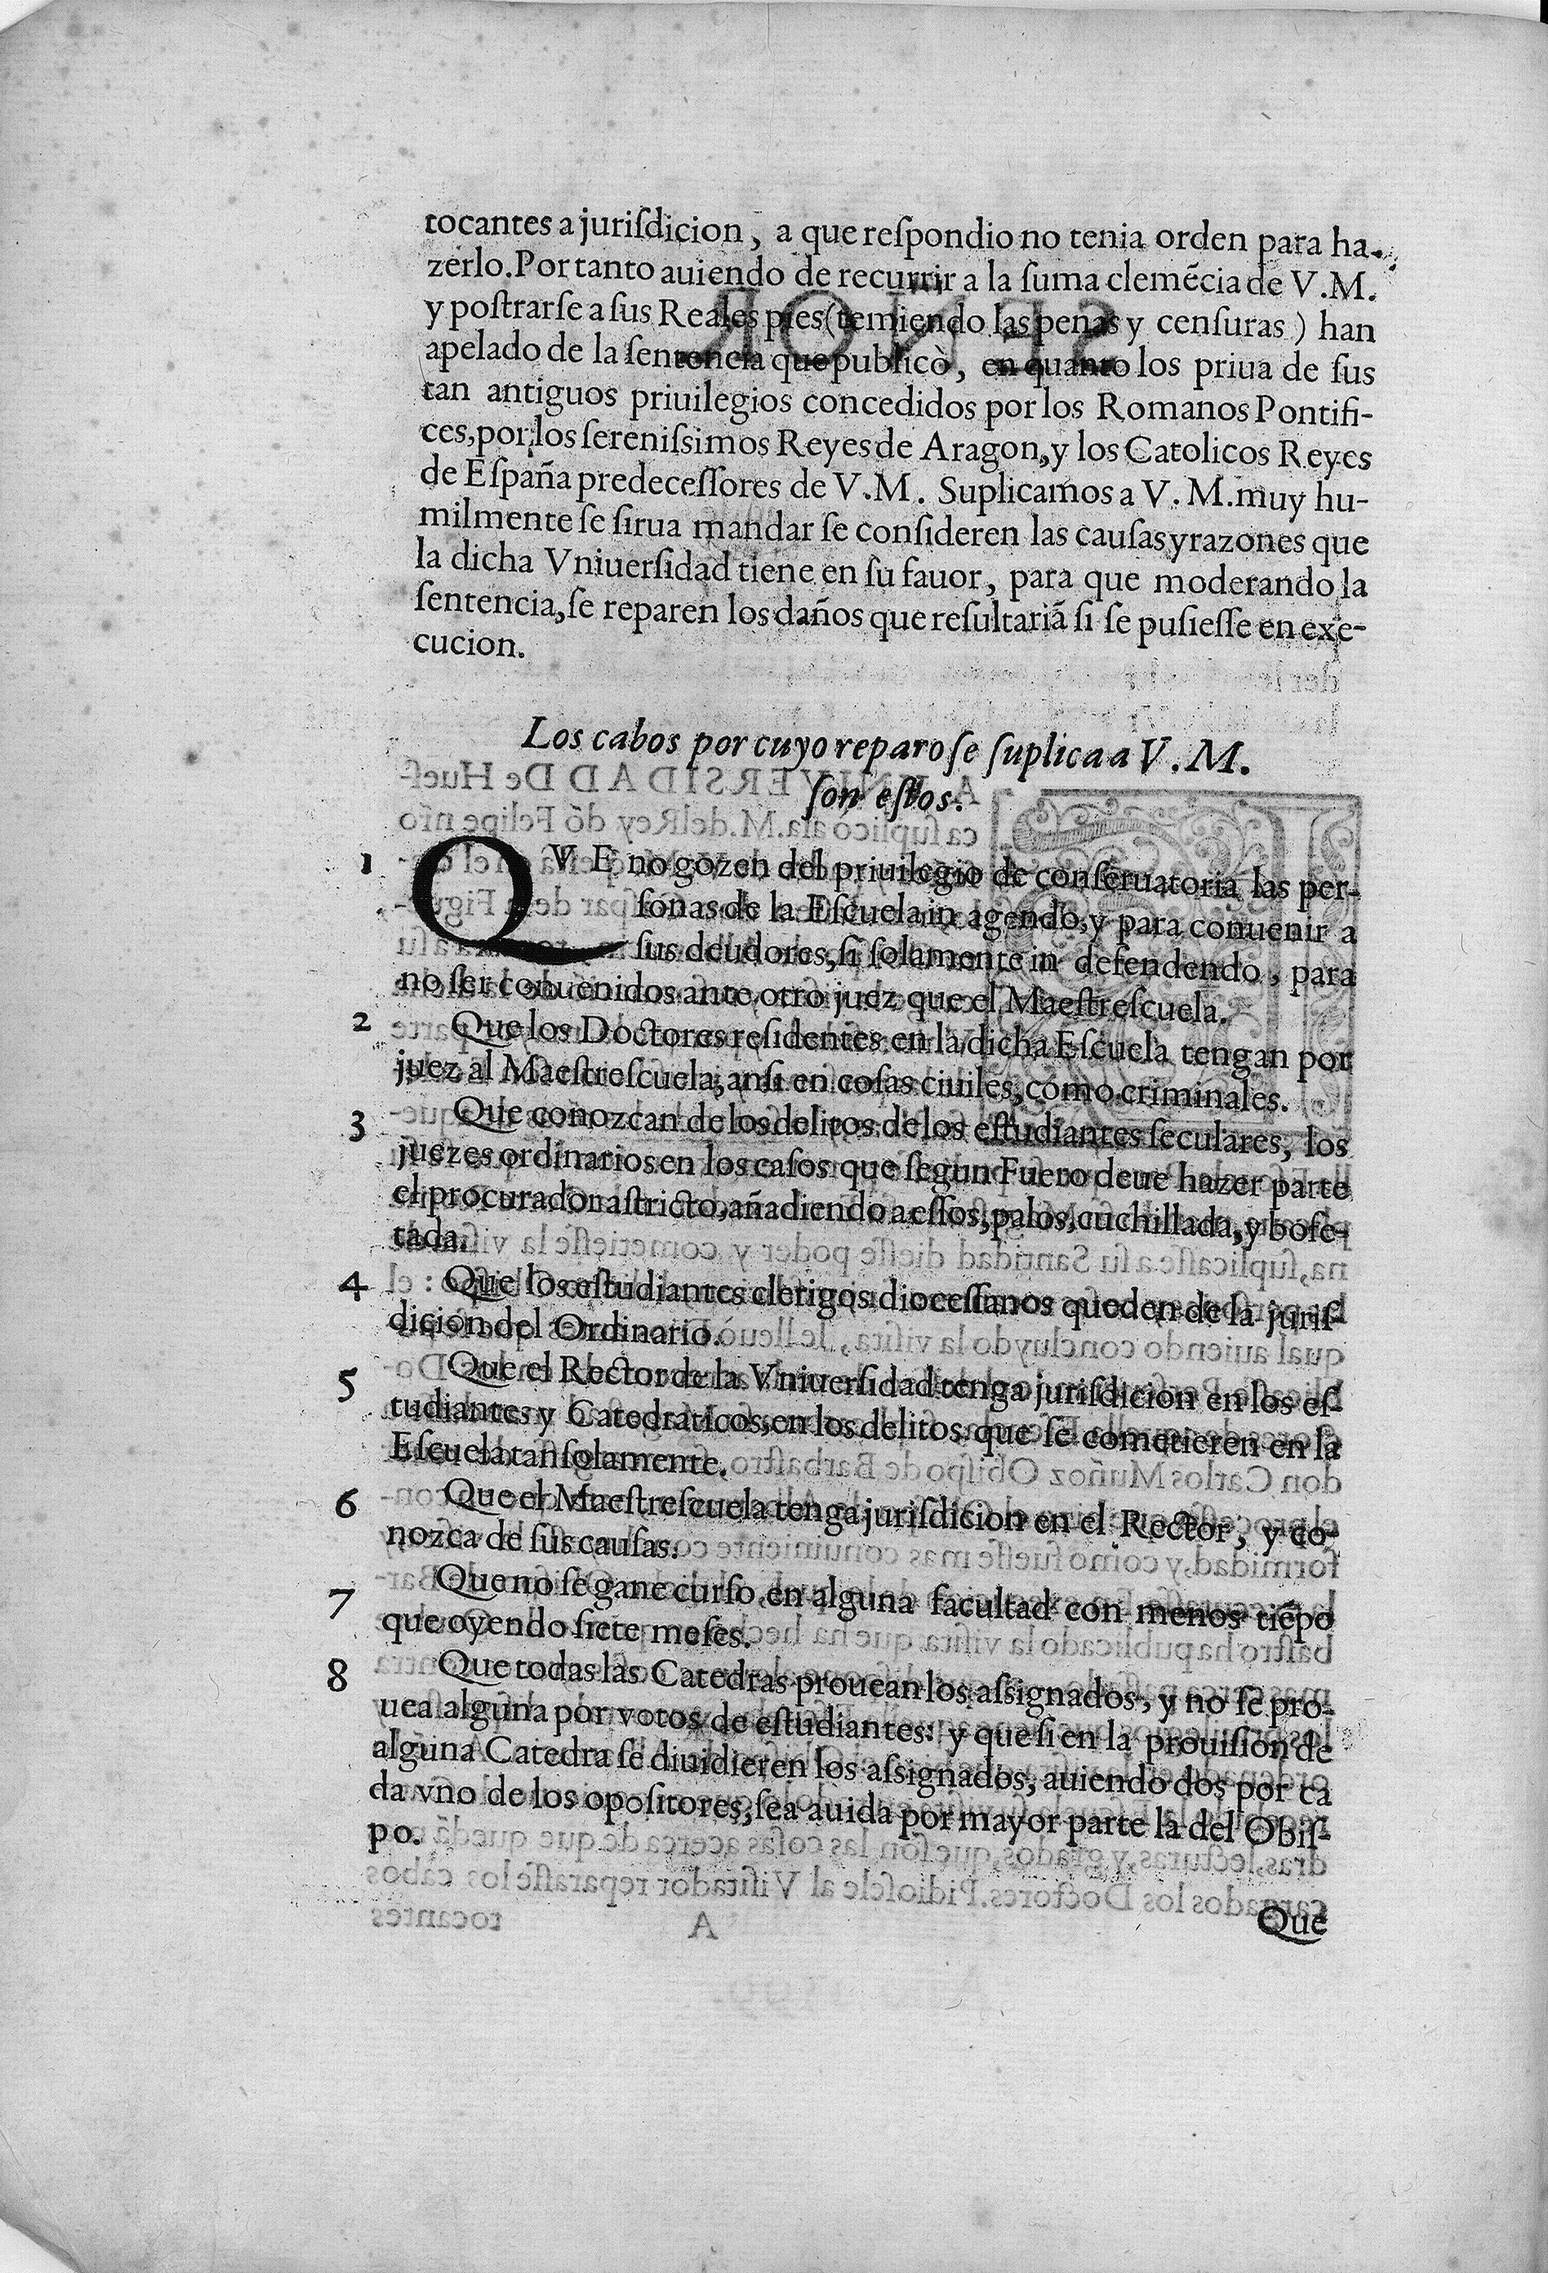 tocantes a juriſdicion, a que reſpondio no tenia orden para ha-
zerlo. Por tanto auiendo de recurrir a la ſuma clemẽcia de V.M.
y poſtrarſe a ſus Reales pies (temiendo las penas y cenſuras) han
apelado de la ſentencia que publicò, en quanto los priua de ſus
tan antiguos priuilegios concedidos por los Romanos Pontifi-
ces, por los ſereniſsimos Reyes de Aragon, y los Catolicos Reyes
de Eſpaña predeceſſores de V.M. Suplicamos a V.M. muy hu-
milmente ſe ſirua mandar ſe conſideren las cauſas y razones que
la dicha Vniuerſidad tiene en ſu fauor, para que moderando la
ſentencia, ſe reparen los daños que reſultariã ſi ſe puſieſſe en exe-
cucion.
Los cabos por cuyo reparo ſe ſuplica a V.M.
ſon eſtos.
1 QVE no gozen del priuilegio de conſeruatoria las per-
ſonas de la Eſcuela in agendo, y para conuenir a
ſus deudores, ſi ſolamente in defendendo, para
no ſer conuenidos ante otro juez que el Maeſtreſcuela.
2 Que los Doctores reſidentes en la dicha Eſcuela tengan por
juez al Maeſtreſcuela, anſi en coſas ciuiles, como criminales.
3 Que conozcan de los delitos de los eſtudiantes ſeculares, los
juezes ordinarios en los caſos que ſegun Fuero deue hazer parte
el procurador aſtricto, añadiendo a eſſos, palos, cuchillada, y bofe-
tada.
4 Que los eſtudiantes clerigos dioceſſanos queden de la juriſ-
dicion del Ordinario.
5 Que el Rector de la Vniuerſidad tenga juriſdicion en los eſ-
tudiantes y Catedraticos, en los delitos que ſe cometieren en la
Eſcuela tan ſolamente.
6 Que el Maeſtreſcuela tenga juriſdicion en el Rector, y co-
nozca de ſus cauſas.
7 Que no ſe gane curſo en alguna facultad con menos tiẽpo
que oyendo ſiete meſes.
8 Que todas las Catedras prouean los aſsignados, y no ſe pro-
uea alguna por votos de eſtudiantes: y que ſi en la prouiſsion de
alguna Catedra ſe diuidieren los aſsignados, auiendo dos por ca
da vno de los opoſitores, ſea auida por mayor parte la del Obiſ-
po.
Que